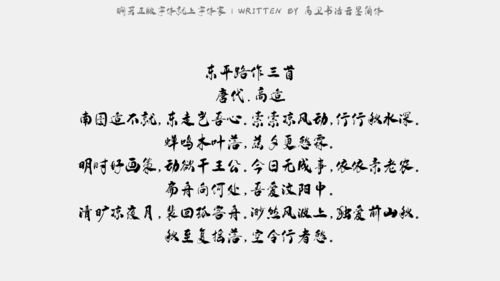 购买正版字体就上字体家 | WRITTEN BY 高卫书法吾墨简体
东平路作三首
唐代.高适
南图适不就,东走岂吾心.索索凉风动,行行秋水深.
蝉鸣木叶落,兹夕更愁霖.
明时好画策,动欲干王公.今日无成事,依依亲老农.
扁舟向何处,吾爱汶阳中.
清旷凉夜月,裴回孤客舟.渺然风波上,独爱前山秋.
秋至复摇落,空令行者愁.